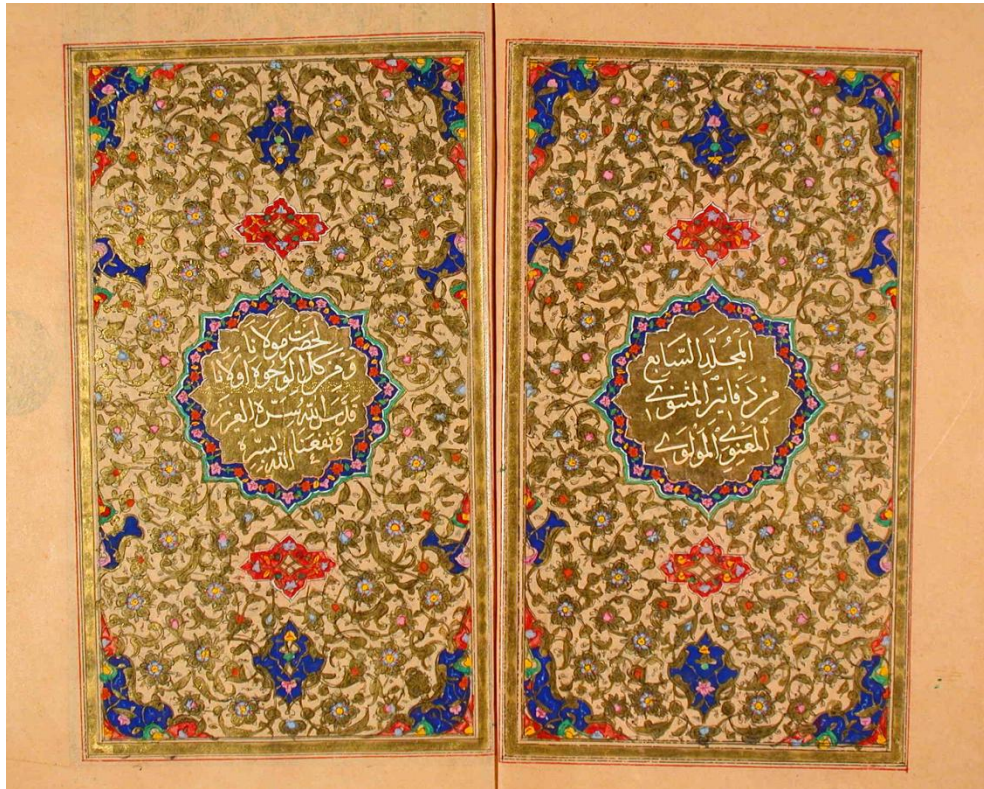 المجلد السابع
من دفاتر المثنوي
المعنوي المولوي
لحضرت مولانا
و من كل الوجوه اولانا
قدس الله سره العزيز
و نفعنا الله بسره